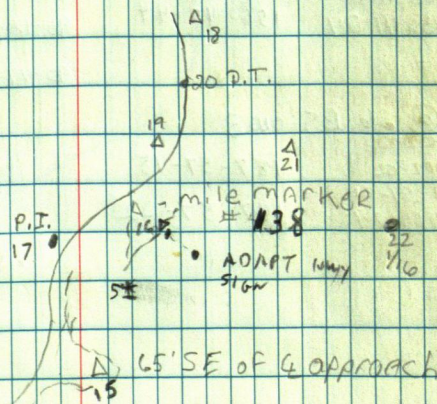 18
20 P.T.
19
21
mile MARKER
# 138
16
P.I.
17
22
1/16
ADAPT HWY
SIGN
5±
65' SE OF ℄ approach
15